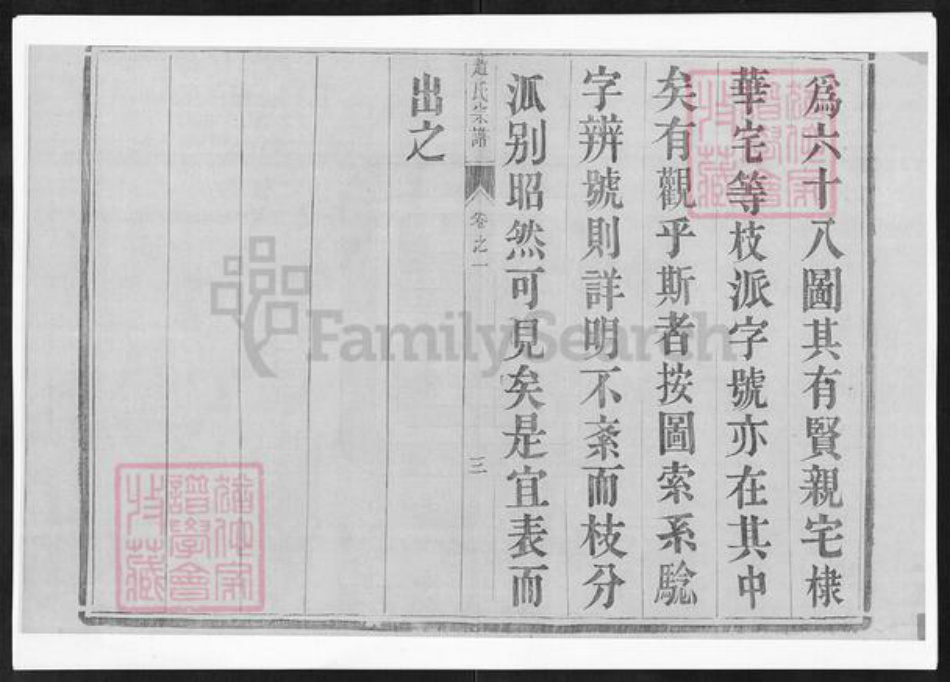 為六十八圖其有賢親宅棣
華宅等枝派字號亦在其中
矣有觀乎斯者按圖索系騐
字辨號則詳明不紊而枝分
派別昭然可見矣是宜表而
出之
趙氏宗譜
卷之一
三
FamilySearch